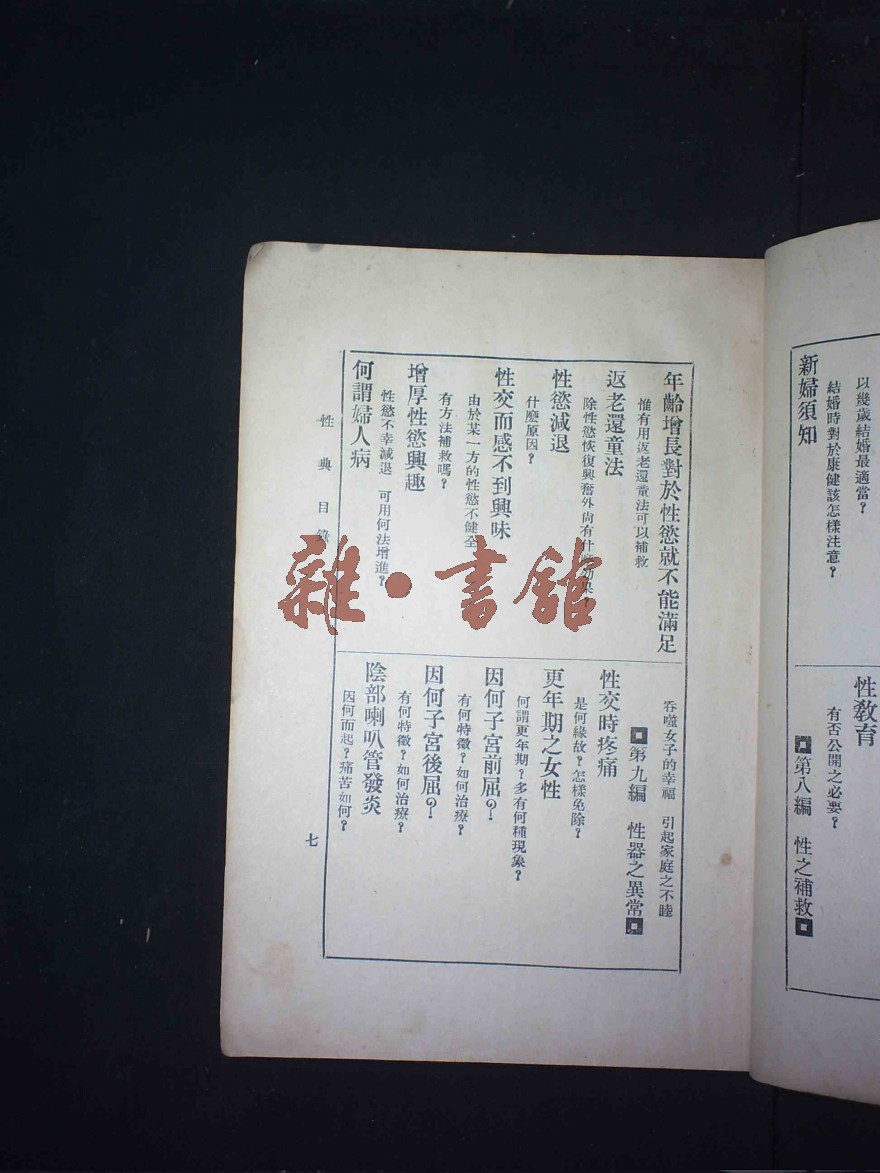 以幾歲結婚最適當？
結婚時對於康健該怎樣注意？
新婦須知
性教育
有否公開之必要？
第八編 性之補救
年齡增長對於性慾就不能滿足
惟有用返老還童法可以補救
返老還童法
除性慾恢復興奮外尙有什麼効果？
性慾減退
什麼原因？
性交而感不到興味
由於某一方的性慾不健全
有方法補救嗎？
增厚性慾興趣
性慾不幸減退 可用何法增進？
何謂婦人病
吞噬女子的幸福 引起家庭之不睦
第九編 性器之異常
性交時疼痛
是何緣故？怎樣免除？
更年期之女性
何謂更年期？多有何種現象？
因何子宮前屈？
有何特徵？如何治療？
因何子宮後屈？
有何特徵？如何治療？
陰部喇叭管發炎
因何而起？痛苦如何？
性典目錄
七
雜·書館